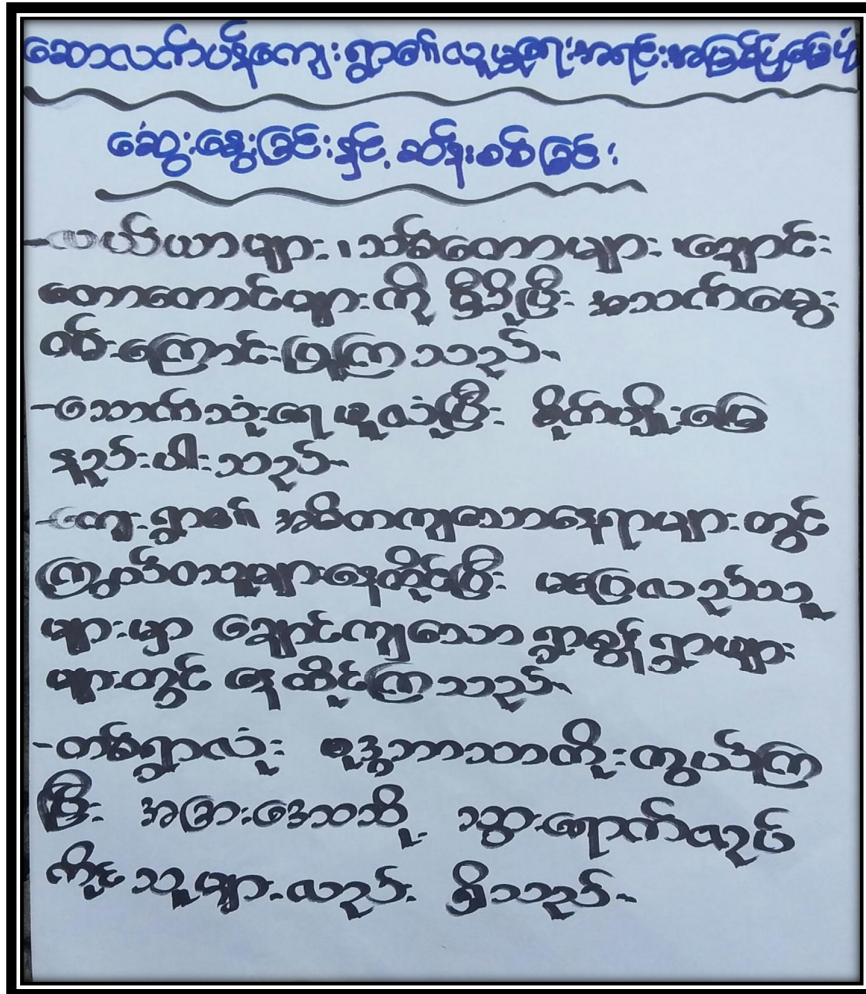 ဆောလက်ပန်ကျေးရွာ၏လူမှုရေးအရင်းအမြစ်ပြမြေပုံ
ဆွေးနွေးခြင်းနှင့် ဆန်းစစ်ခြင်း
-လယ်ယာများ၊သစ်တောများ၊ချောင်း
တောတောင်များကို မှီခိုပြီး အသက်မွေး
ဝမ်းကြောင်းပြုကြသည်။
-သောက်သုံးရေ ဖူလုံပြီး စိုက်ပျိုးမြေ
နည်းပါးသည်။
-ကျေးရွာ၏ အဓိကကျသောနေရာများတွင်
ကြွယ်ဝသူများနေထိုင်ပြီး မပြေလည်သူ
များမှာ ချောင်ကျသော ရွာစွန်ရွာဖျား
များတွင် နေထိုင်ကြသည်။
-တစ်ရွာလုံး ဗုဒ္ဓဘာသာကိုးကွယ်ကြ
ပြီး အခြားဒေသသို့ သွားရောက်လုပ်
ကိုင်သူများလည်း ရှိသည်။